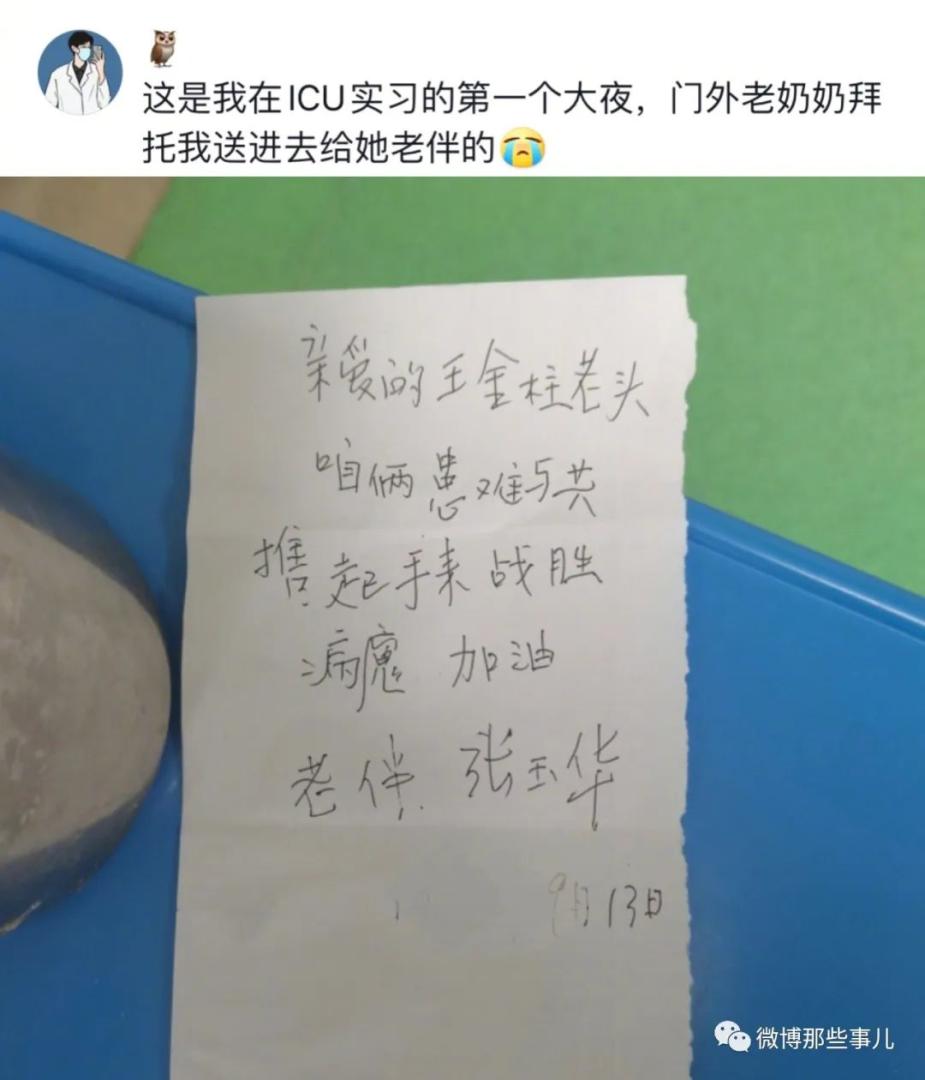 这是我在ICU实习的第一个大夜，门外老奶奶拜
托我送进去给她老伴的
亲爱的王金柱老头
咱俩患难与共
携起手来战胜
病魔 加油
老伴 张玉华
9月13日
微博那些事儿